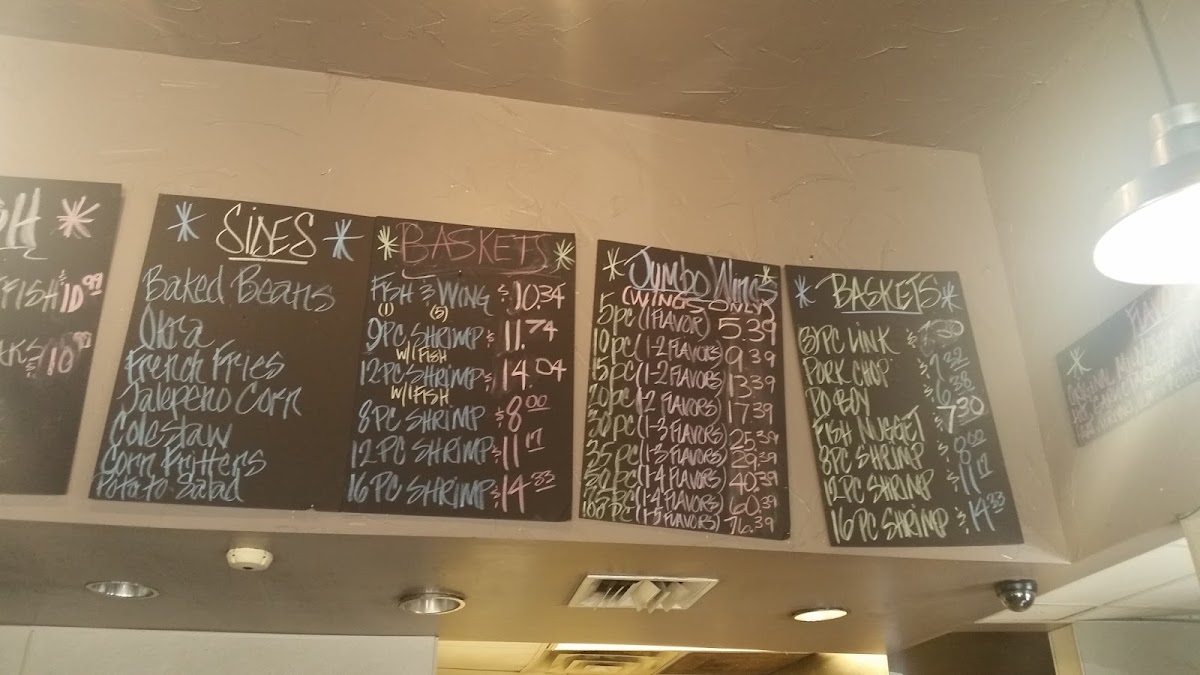 SH
FISH $10.99
AKS $10.99
SIDES
Baked Beans
Okra
French Fries
Jalepeno Corn
Coleslaw
Corn Fritters
Potato Salad
BASKETS
FISH & WING $10.34
(1) (5)
9PC SHRIMP $11.74
W/1 FISH
12PC SHRIMP $14.04
W/1 FISH
8PC SHRIMP $8.00
12PC SHRIMP $11.17
16PC SHRIMP $14.33
Jumbo Wings
(WINGS ONLY)
5pc (1 FLAVOR) 5.39
10pc (1-2 FLAVORS) 9.39
15pc (1-2 FLAVORS) 13.39
20pc (1-2 FLAVORS) 17.39
30pc (1-3 FLAVORS) 25.39
35pc (1-3 FLAVORS) 29.39
50pc (1-4 FLAVORS) 40.39
75pc (1-4 FLAVORS) 60.39
100pc (1-5 FLAVORS) 76.39
BASKETS
3PC LINK
PORK CHOP
PO BOY $6.38
FISH NUGGET $7.30
8PC SHRIMP $8.00
12PC SHRIMP $11.17
16PC SHRIMP $14.33